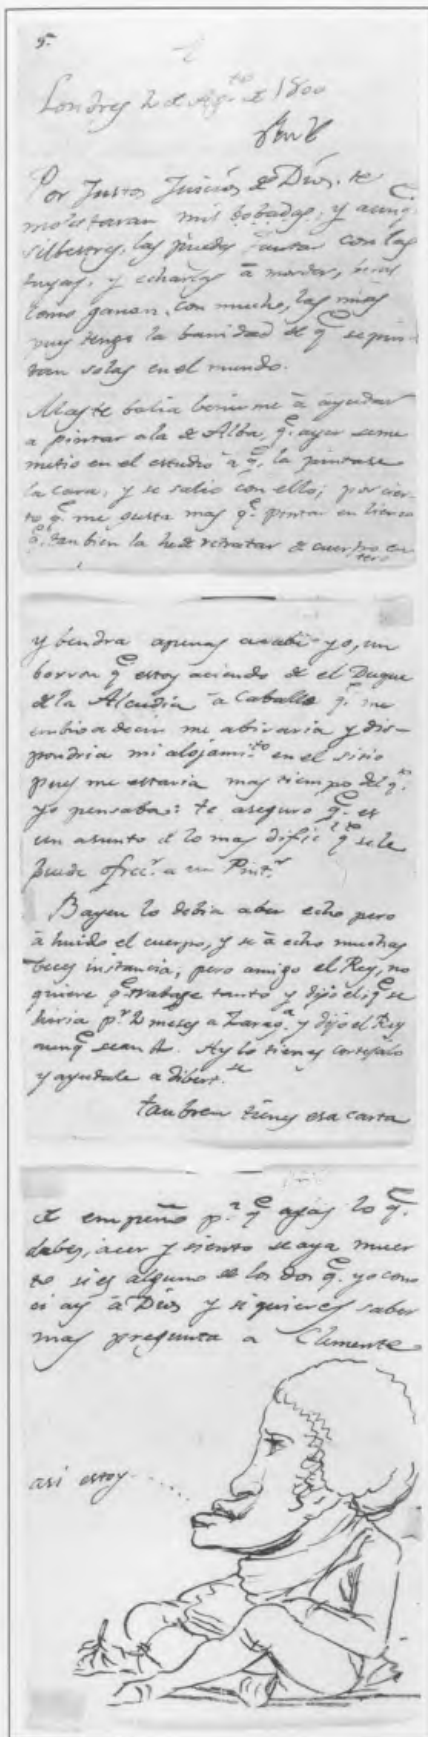 Londres 2 de Ag.to de 1800
Por Justos Juicios de Dios, te
molestaran mis bobadas, y aunq.e
silbestres, las puedes juntar con las
tuyas, y echarlas â morder, beras
como ganan, con mucho, las mias
pues tengo la banidad de q.e se pin-
tan solas en el mundo.
Mas te balia benirme â ayudar
a pintar a la de Alba, q.e ayer se me
metio en el estudio â q.e la pintase
la cara, y se salio con ello; por cier-
to q.e me gusta mas q.e pintar en lienzo
q.e tanbien la he de retratar de cuerpo en-
tero
y bendra apenas acabe yo, un
borron q.e estoy aciendo de el Duque
de la Alcudia â Caballo q.e me
embio a decir me abisaria y dis-
pondria mi alojami.to en el sitio
pues me estaria mas tiempo del q.e
yo pensaba: te aseguro q.e es
un asunto de lo mas dificil q.e se le
puede ofrec.r a un Pint.r
Bayeu lo debia aber echo pero
â huido el cuerpo, y se â echo muchas
beces instancia, pero amigo el Rey, no
quiere q.e trabage tanto y dijo el q.e se
hiria p.r 2 meses a Zarag.a y dijo el Rey
aunq.e sean 4. Ay lo tienes cortejalo
y ayudale a dibert.se
tanbien tienes esa carta
de empeño p.a q.e agas lo q.e
debes, acer y siento se aya muer
to si es alguno de los dos q.e yo cono
ci ay â Dios y si quieres saber
mas pregunta a Clemente
asi estoy